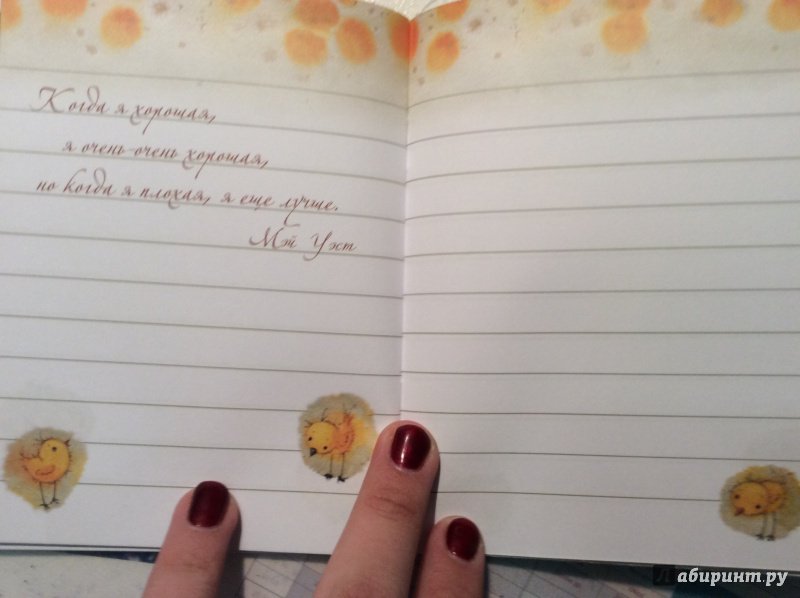 Когда я хорошая,
я очень-очень хорошая,
но когда я плохая, я еще лучше.
Мэй Уэст
Лабиринт.ру